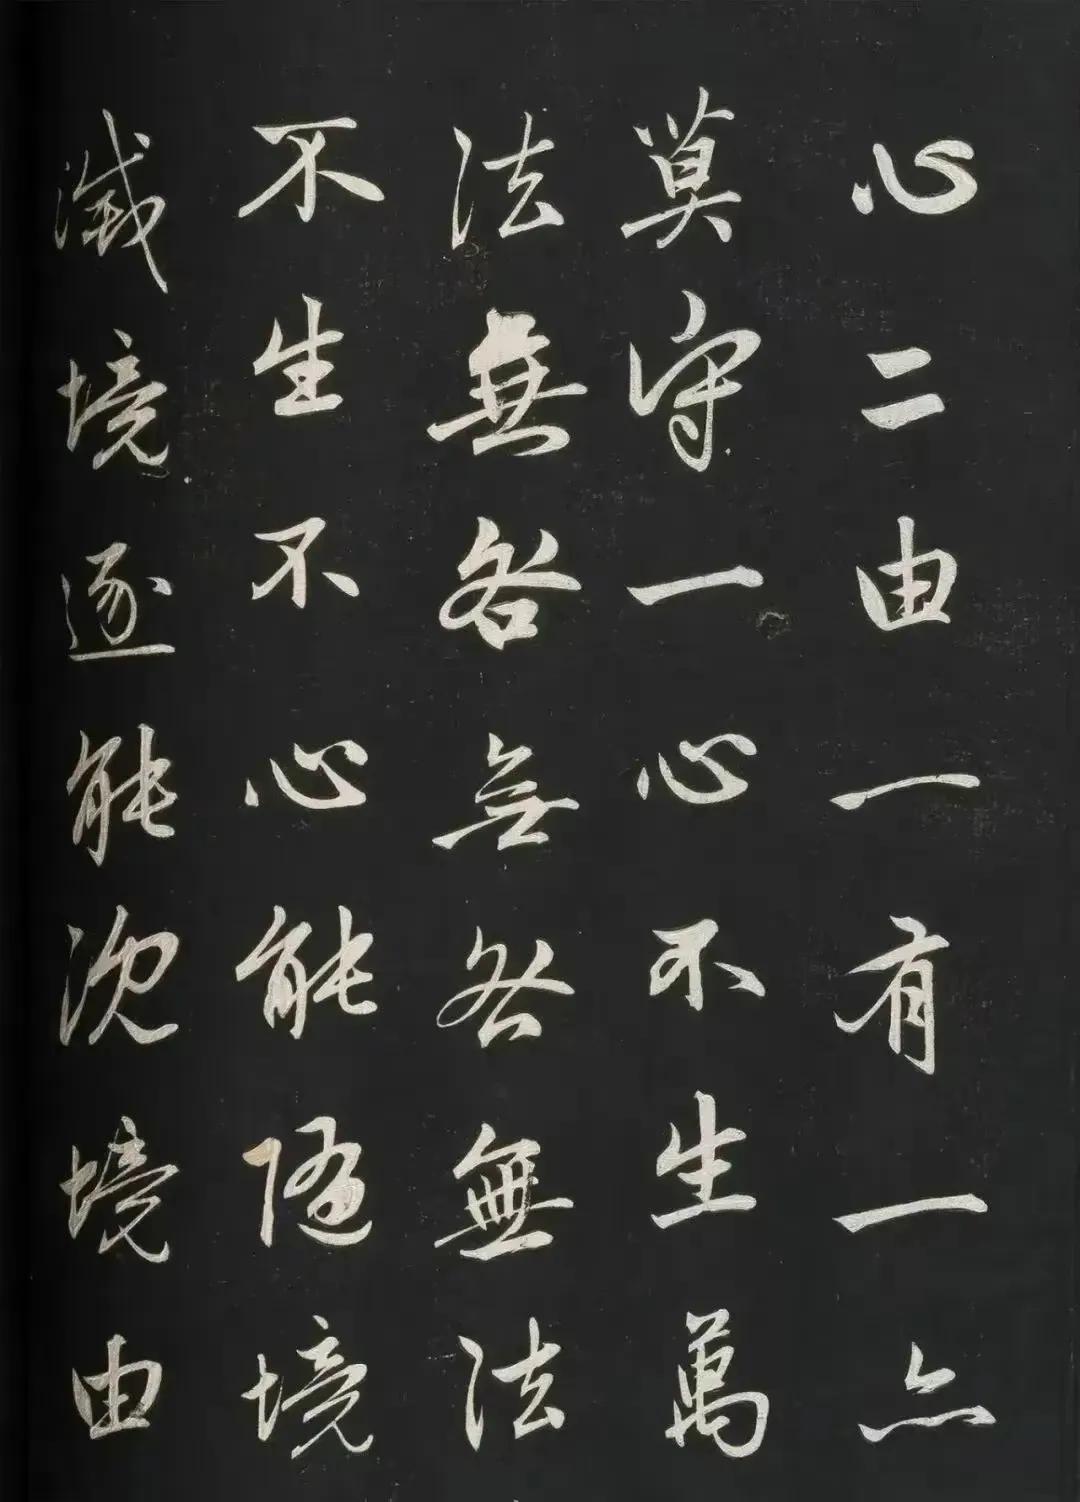 心二由一有一亦
莫守一心不生萬
法無咎無咎無法
不生不心能隨境
滅境逐能沉境由